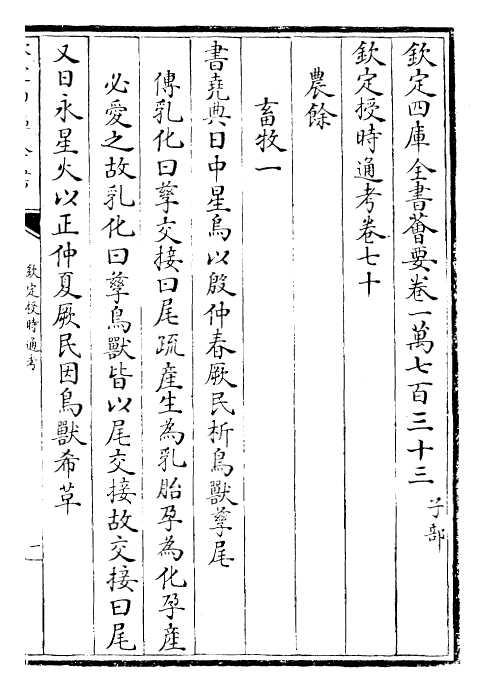 欽定四庫全書薈要卷一萬七百三十三 子部
欽定授時通考卷七十
農餘
畜牧一
書堯典日中星鳥以殷仲春厥民析鳥獸孳尾
傳乳化曰孳交接曰尾疏產生為乳胎孕為化孕產
必愛之故乳化曰孳鳥獸皆以尾交接故交接曰尾
又日永星火以正仲夏厥民因鳥獸希革
欽定授時通考
一